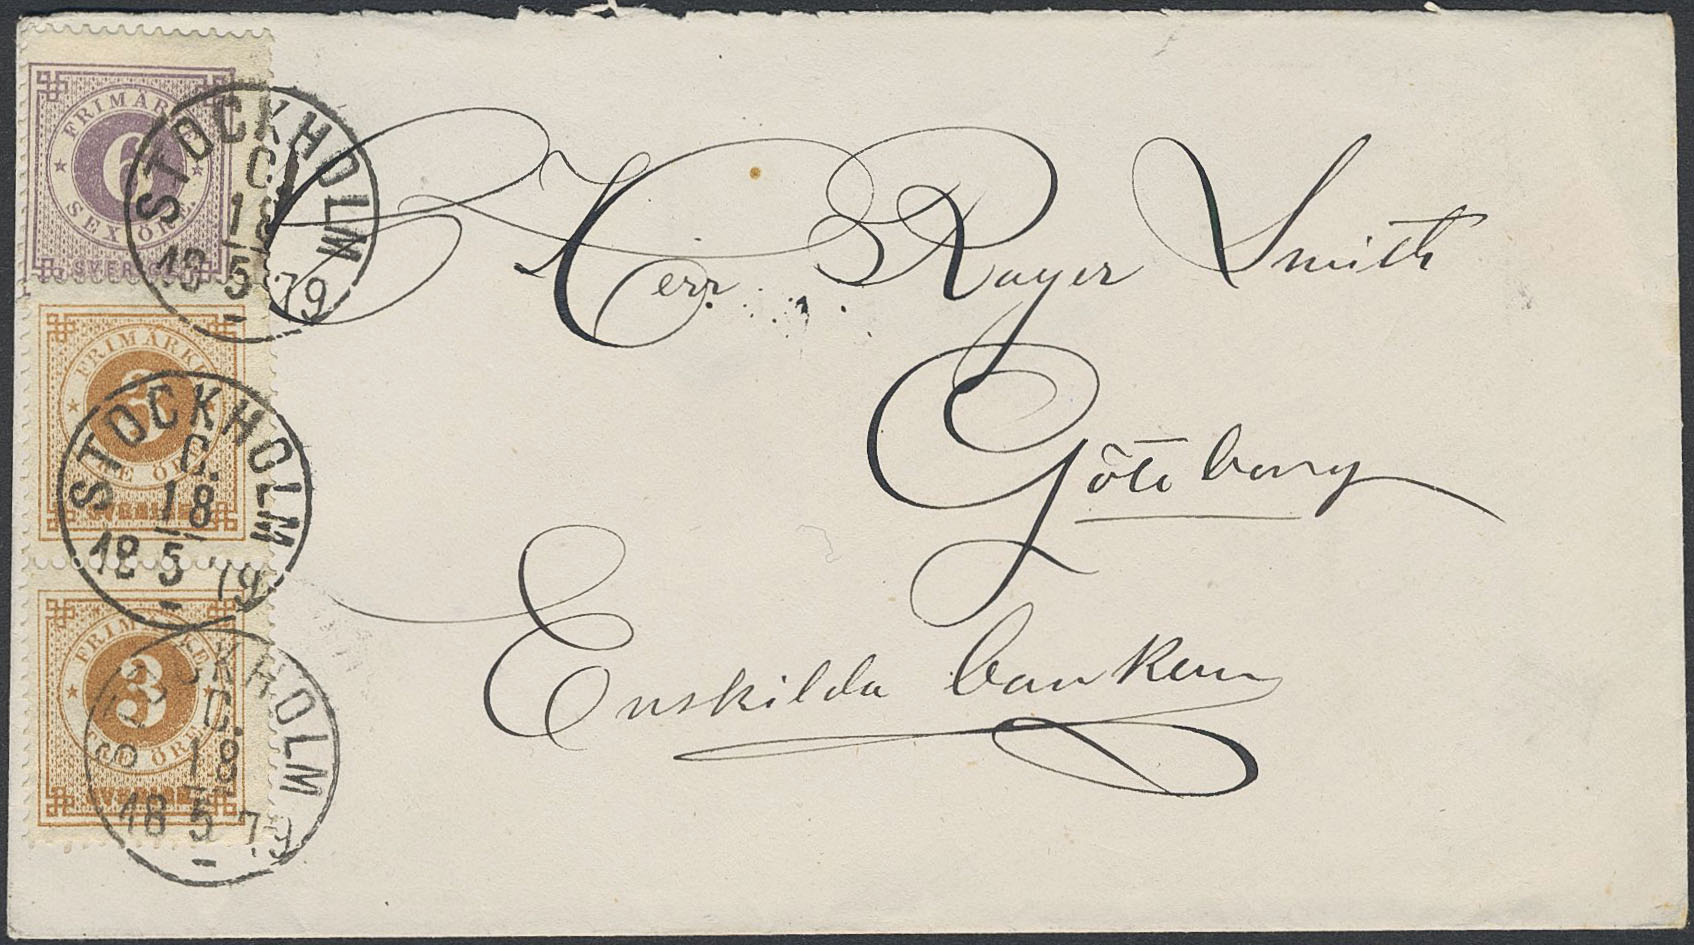 FRIMÄRKE
6
SEX ÖRE.
SVERIGE
STOCKHOLM
C.
18
18 5 79
FRIMÄRKE
3
TRE ÖRE
SVERIGE
STOCKHOLM
C.
18
18 5 79
FRIMÄRKE
3
TRE ÖRE
SVERIGE
STOCKHOLM
C.
18
18 5 79
Herr Roger Smith
Göteborg
Enskilda banken